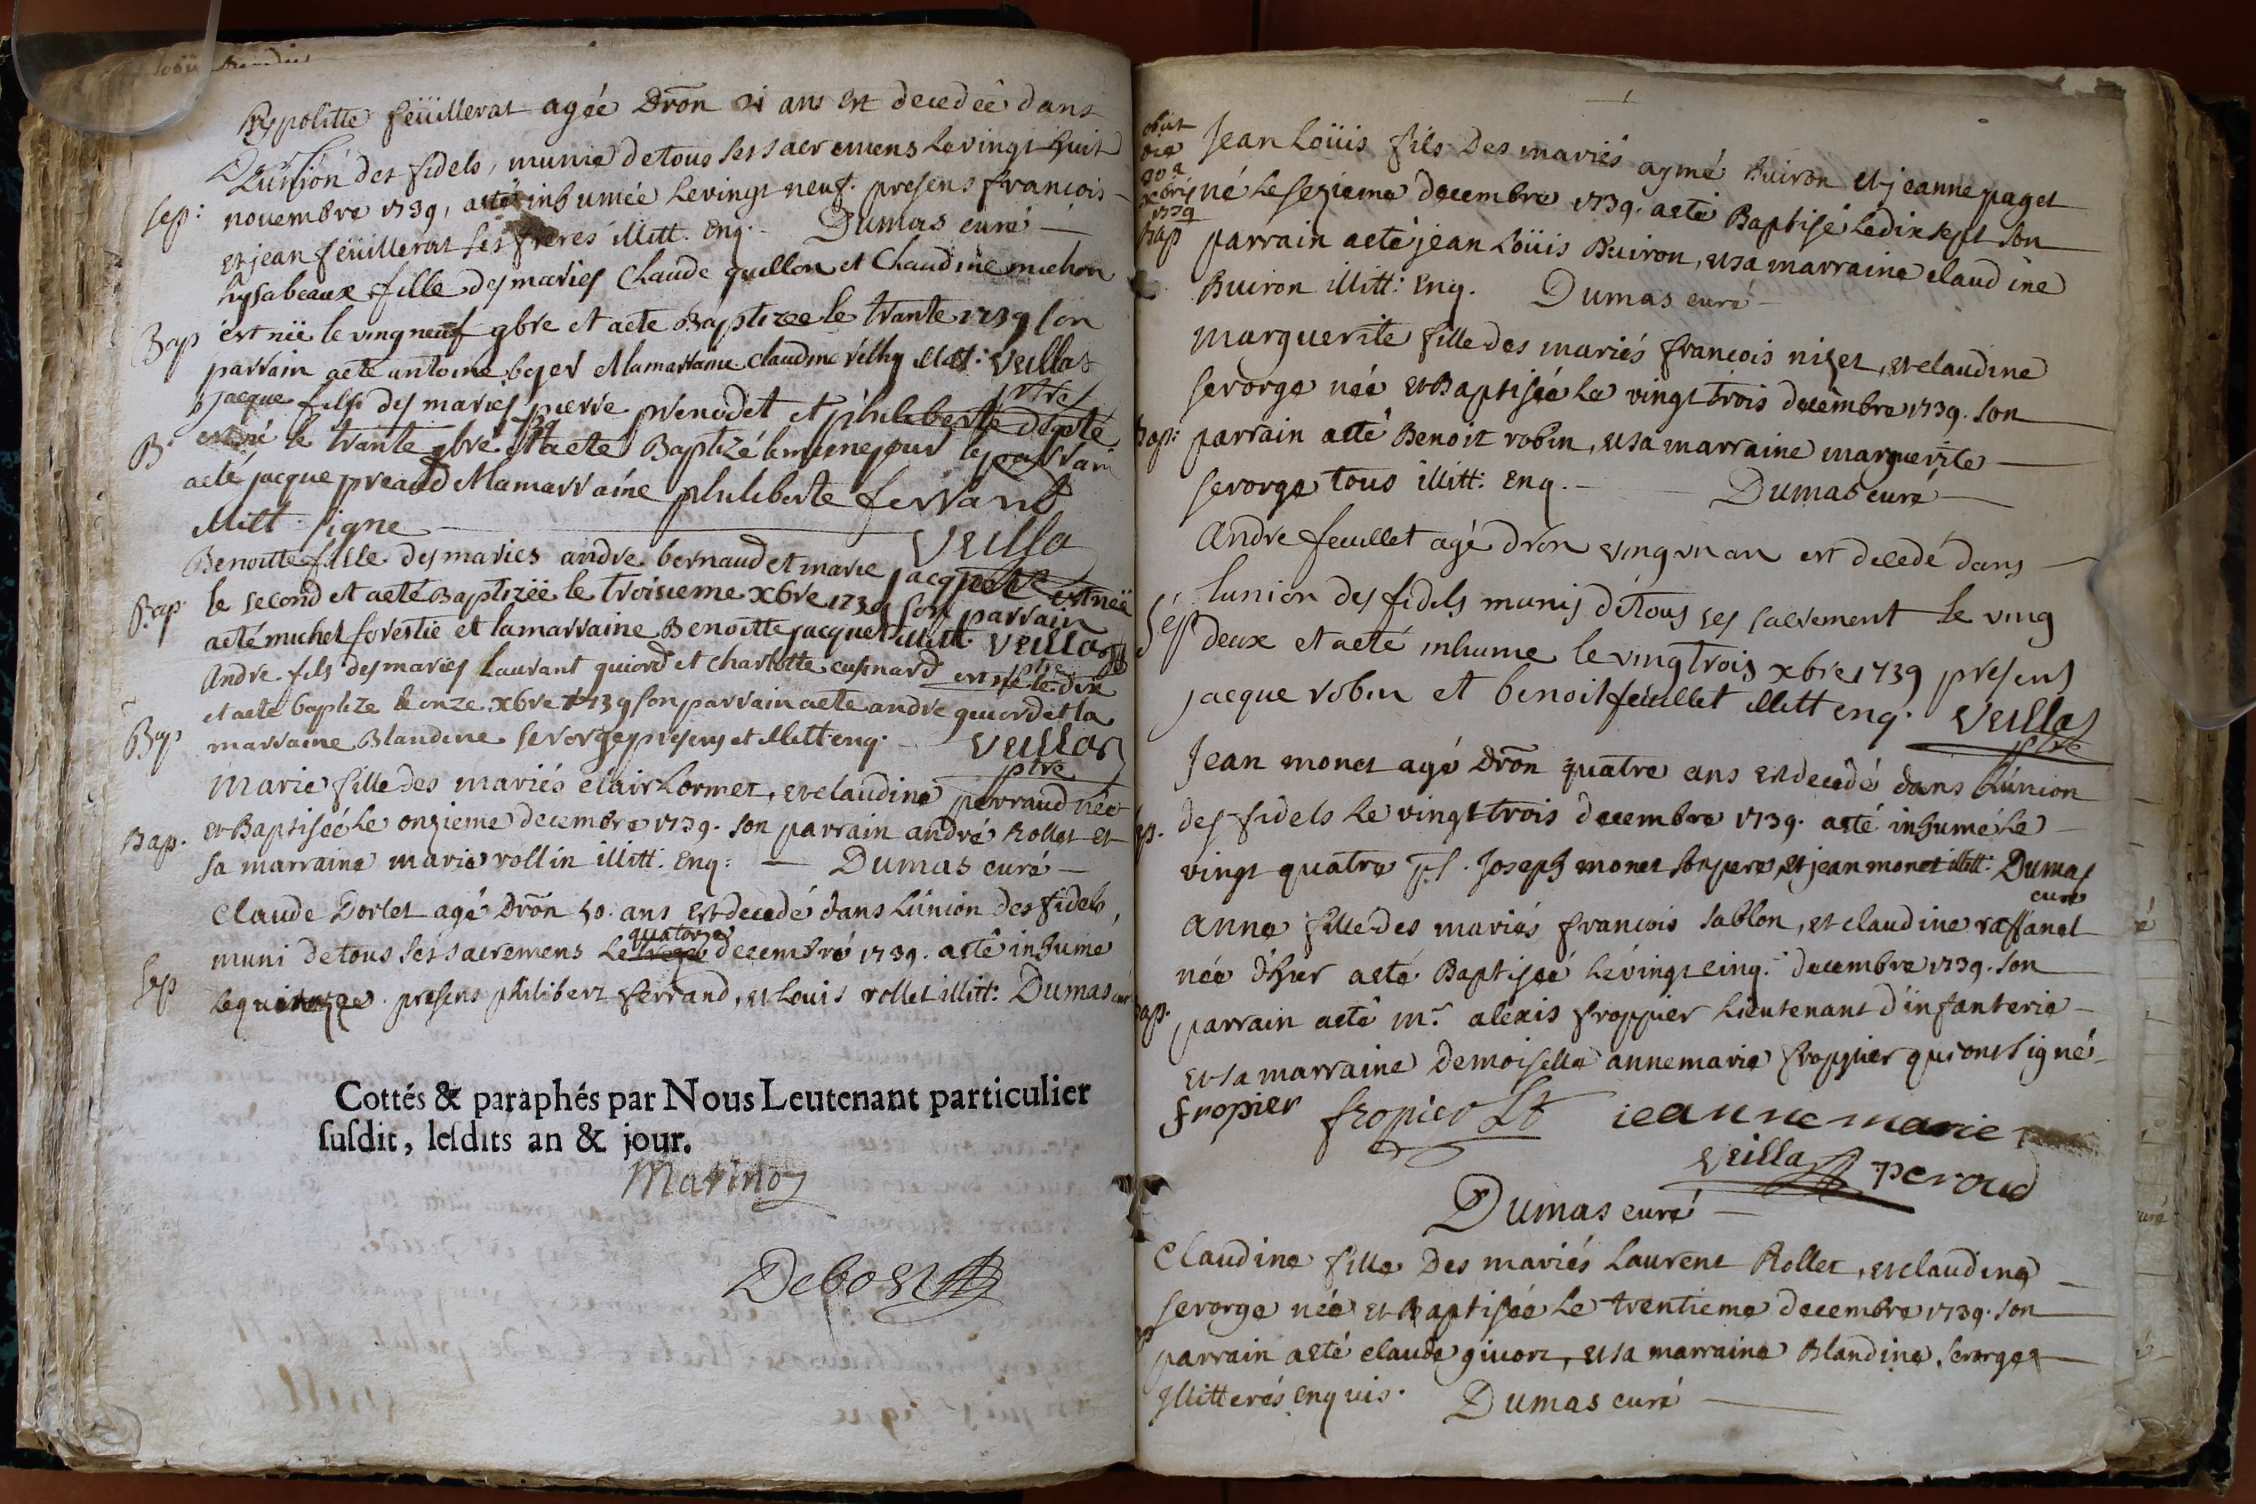 hypolitte feüillerat agée Dron 21 ans est decedeé dans
Lunion des fidels, munie de tous ses sacremens le vingt huit
sep: novembre 1739, aeté inhumée le vingt neuf. presens francois
et jean feüillerat ses freres illitt. Enq. Dumas curé
Lysabeaux fille des maries Claude guillon et Claudine michon
Bap est née le ving neuf 9bre et aeté Baptizee le trante 1739 son
parrain aeté antoine boyer et lamarraine claudine velhy illitt: Veillas
ptre
jacque fils des maries pierre prenodet et philiberte
B. est né le trante 9bre 1739 et aeté Baptizé le meme jour le parrain
aeté jacque preaud et lamarraine philiberte ferrand
illitt. signe Veilla
Benoitte fille des maries andre bernaud et marie jacquet est neé
Bap le second et aeté Baptizeé le troisieme xbre 1739 son parrain
aeté michel forestie et lamarraine Benoitte jacquet illitt. Veillas
ptre
Andre fils des maries Laurant guiord et Charlotte cusinard est né le dix
et aeté baptize le onze xbre 1739 son parrain aeté andre guiord et la
Bap marraine Blandine serorge presens et illitt enq. Veillas
ptre
Marie fille des mariés clair Lormet, et claudine perraud née
Bap. et Baptiseé le onzieme decembre 1739. son parrain andré Rollet et
sa marraine marie rollin illitt. Enq: Dumas curé
Claude Dorlet agé Dron 50. ans est decedé dans L'union des fidels,
quatorze
muni de tous ses sacremens le decembre 1739. aeté inhumé
Sep le quinze. presens philibert ferrand, et Louis rollet illitt: Dumas curé
Cottés & paraphés par Nous Leutenant particulier
susdit, lesdits an & jour.
Marinos
Debost
obiit
die
20a
xbris
1739
Jean Loüis fils des mariés aymé Buiron et jeanne paget
né le sezieme decembre 1739. aeté Baptisé le dix sept son
Bap parrain aeté jean Loüis Buiron, et sa marraine claudine
Buiron illitt: Enq. Dumas curé
Marguerite fille des mariés francois nizet, et claudine
serorge née et Baptisée le vingt trois decembre 1739. son
Bap: parrain aeté Benoit robin, et sa marraine marguerite
serorge tous illitt: Enq. Dumas curé
Andre feuillet agé dron ving un an est decedé dans
lunion des fidels munis de tous ses sacrement le ving
Sep deux et aeté inhume le ving trois xbre 1739 presens
jacque robin et benoit feuillet illitt enq. Veillas
ptre
Jean monet agé Dron quatre ans est decedé dans L'union
des fidels le vingt trois decembre 1739. aeté inhumé le
vingt quatre ps. Joseph monet son pere, et jean monet illitt: Dumas
curé
Anne fille des mariés francois sablon, et claudine raffanel
née d'hier aeté Baptiseé le vingt cinq. decembre 1739. son
Bap. parrain aeté mr. alexis froppier Lieutenant d'infanterie
et sa marraine Demoiselle anne marie froppier qui ont signé
fropier fropier Lt ieanne marie
Veillas peroud
Dumas curé
Claudine fille des mariés Laurent Rollet, et claudine
serorge née et Baptisée le trentieme decembre 1739. son
parrain aeté claude giuort, et sa marraine Blandine serorge
illitterés enquis. Dumas curé